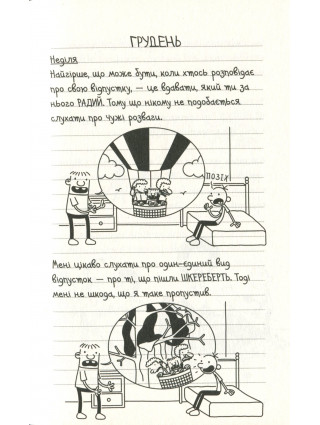 ГРУДЕНЬ
Неділя
Найгірше, що може бути, коли хтось розповідає
про свою відпустку, — це вдавати, який ти за
нього РАДИЙ. Тому що нікому не подобається
слухати про чужі розваги.
ПОЗІХ
Мені цікаво слухати про один-єдиний вид
відпусток — про ті, що пішли ШКЕРЕБЕРТЬ. Тоді
мені не шкода, що я таке пропустив.